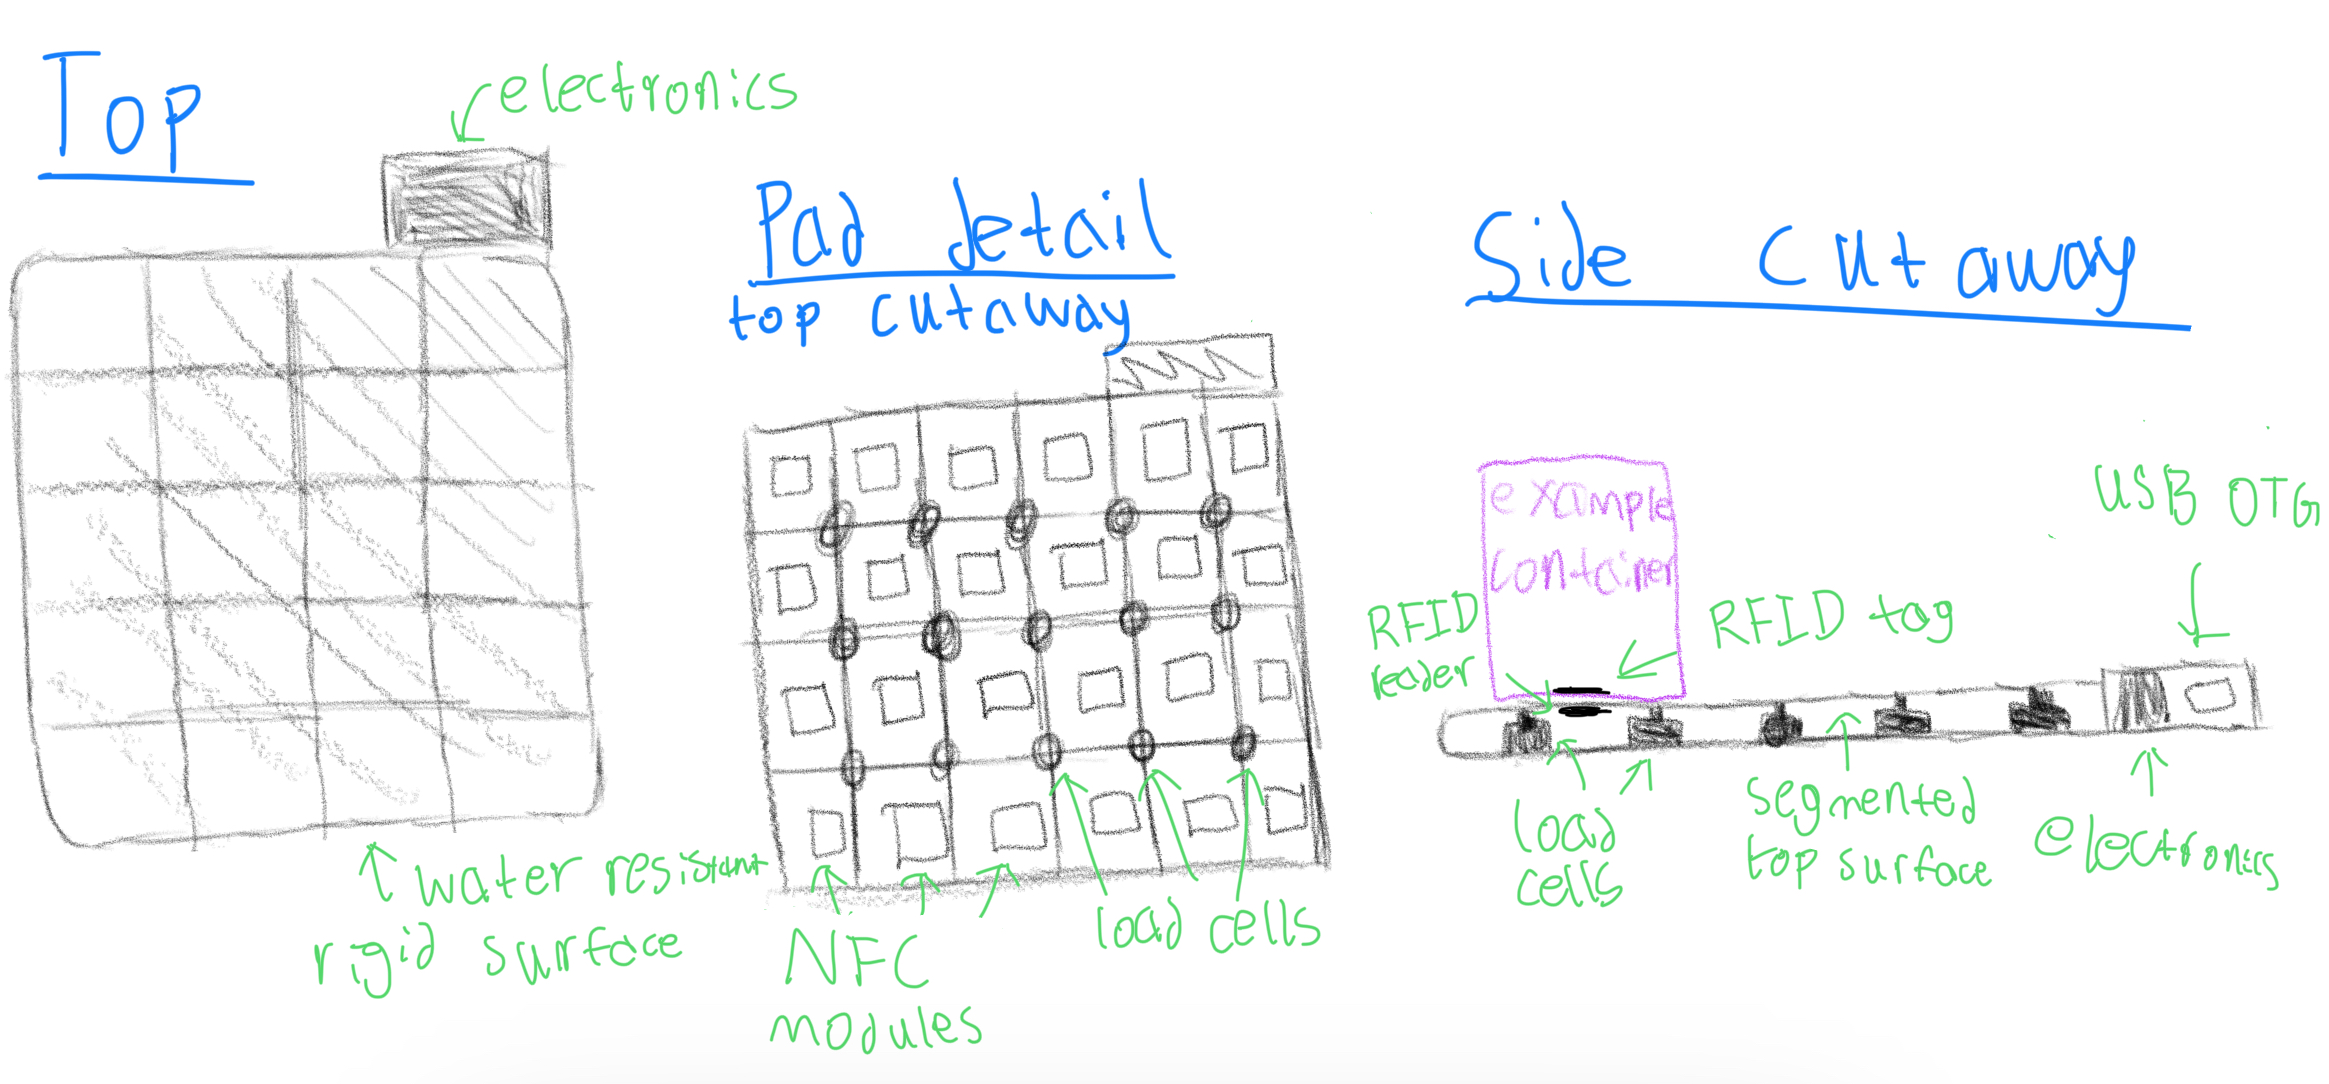 Top
electronics
water resistant
rigid surface
Pad detail
top cutaway
NFC
modules
load cells
Side cutaway
example
container
RFID
reader
RFID tag
USB OTG
load
cells
segmented
top surface
electronics